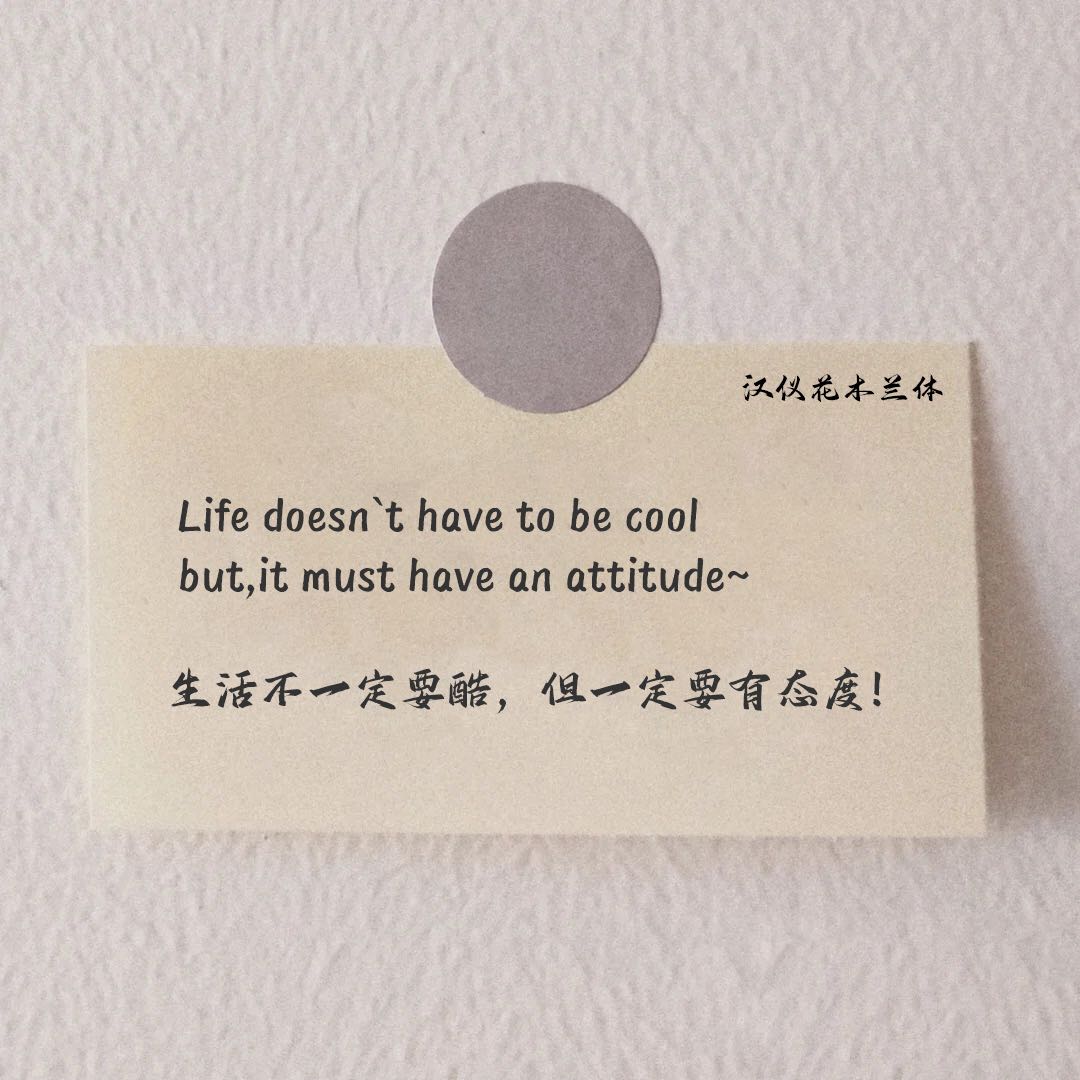 汉仪花木兰体
Life doesn`t have to be cool
but,it must have an attitude~
生活不一定要酷，但一定要有态度！